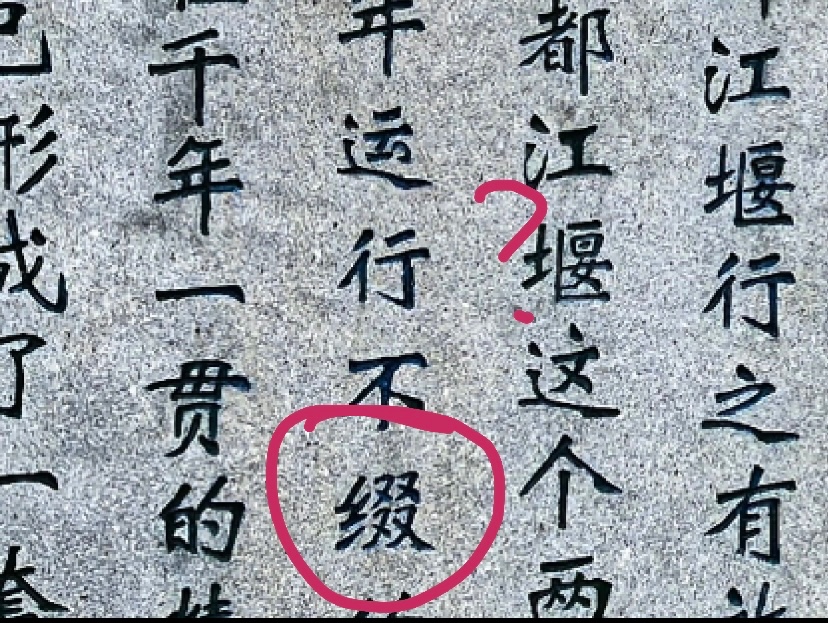 江堰行之有
都江堰这个两
年运行不缀
千年一贯的
形成了一套